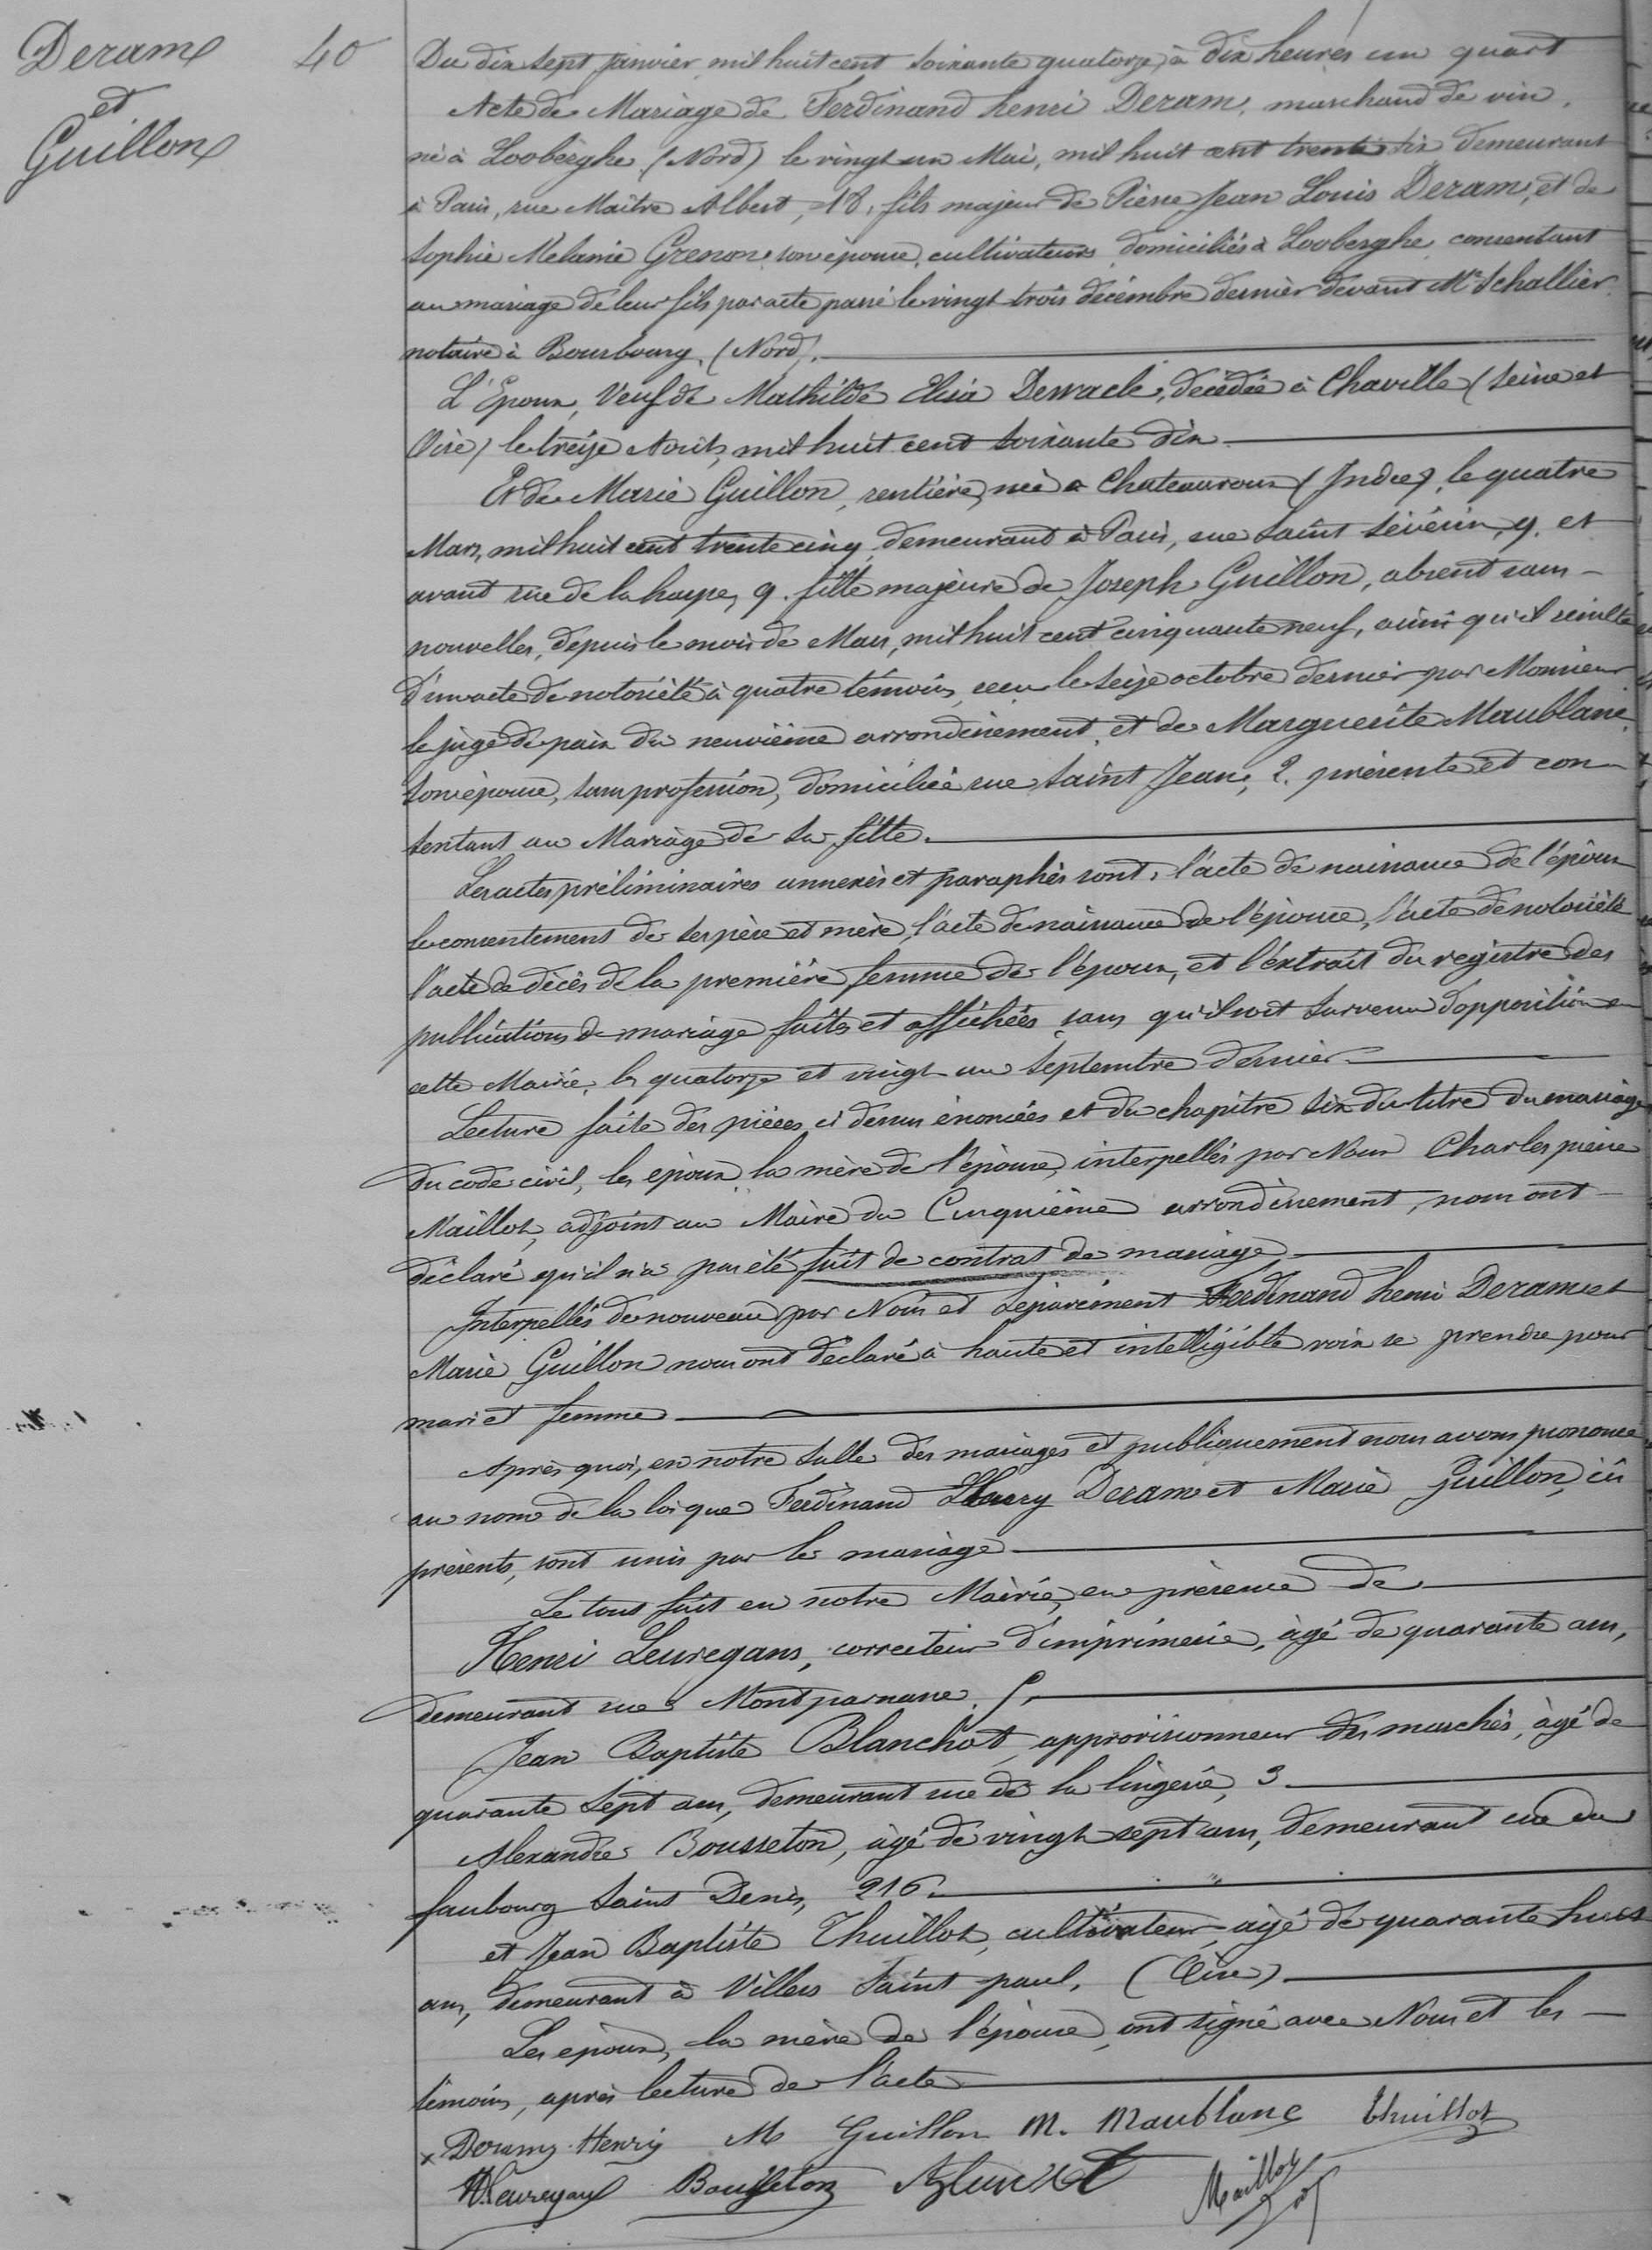 Deram
et
Guillon
40
Du dix sept janvier mil huit cent soixante quatorze, à dix heures un quart
Acte de Mariage de Ferdinand henri Deram, marchand de vin,
né à Looberghe (Nord) le vingt un Mai, mil huit cent trente six demeurant
à Paris, rue Maître Albert, 18, fils majeur de Pierre Jean Louis Deram, et de
Sophie Mélanie Grenon, son épouse, cultivateurs domiciliés à Looberghe, consentant
au mariage de leur fils par acte passé le vingt trois décembre dernier devant Me Schallier
notaire à Bourbourg, (Nord).
L'Epoux, Veuf de Mathilde Elisa Dewacle, décédée à Chaville (Seine et
Oise) le treize Août, mil huit cent soixante dix
Et de Marie Guillon, rentière, née à Chateauroux (Indre), le quatre
Mars, mil huit cent trente cinq, demeurant à Paris, rue Saint Séverin, 9. et
avant rue de la harpe, 9. fille majeure de Joseph Guillon, absent sans
nouvelles, depuis le mois de Mars, mil huit cent cinquante neuf, ainsi qu'il résulte
d'un acte de notoriété à quatre témoins, reçu le seize octobre dernier par Monsieur
le juge de paix du neuvième arrondissement, et de Marguerite Maublanc
son épouse, sans profession, domiciliée rue Saint Jean, 2. présente et con-
sentant au Mariage de sa fille.
Les actes préliminaires annexés et paraphés sont, l'acte de naissance de l'époux
le consentement de ses père et mère, l'acte de naissance de l'épouse, l'acte de notoriété
l'acte de décès de la première femme de l'époux, et l'extrait du registre des
publications de mariage faites et affichées sans qu'il soit survenu d'opposition en
cette Mairie, les quatorze et vingt un Septembre dernier
Lecture faite des pièces ci dessus énoncées et du chapitre six du titre du mariage
du code civil, les époux, la mère de l'épouse, interpellés par Nous Charles pierre
Maillot, adjoint au Maire du Cinquième arrondissement, nous ont
déclaré qu'il n'a pas été fait de contrat de mariage
Interpellés de nouveau par Nous et séparément Ferdinand henri Deram et
Marie Guillon nous ont déclaré à haute et intelligible voix se prendre pour
mari et femme
Après quoi, en notre salle des mariages et publiquement nous avons prononcé
au nom de la loi que Ferdinand Henry Deram et Marie Guillon, ici
présents, sont unis par le mariage
Le tout fait en notre Mairie, en présence de
Henri Leuregans, correcteur d'imprimerie, âgé de quarante ans,
demeurant rue Montparnasse, 5,
Jean Baptiste Blanchot, approvisionneur des marchés, âgé de
quarante sept ans, demeurant rue de la lingerie, 3
Alexandre Bousseton, âgé de vingt sept ans, demeurant rue du
faubourg Saint Denis, 216.
et Jean Baptiste Thuillot, cultivateur, âgé de quarante huit
ans, demeurant à Villers Saint paul, (Oise)
Les époux, la mère de l'épouse, ont signé avec Nous et les
témoins, après lecture de l'acte
x Deram Henry M Guillon M. Maublanc Thuillot
HLeuregans Bousseton Blanchot Maillot